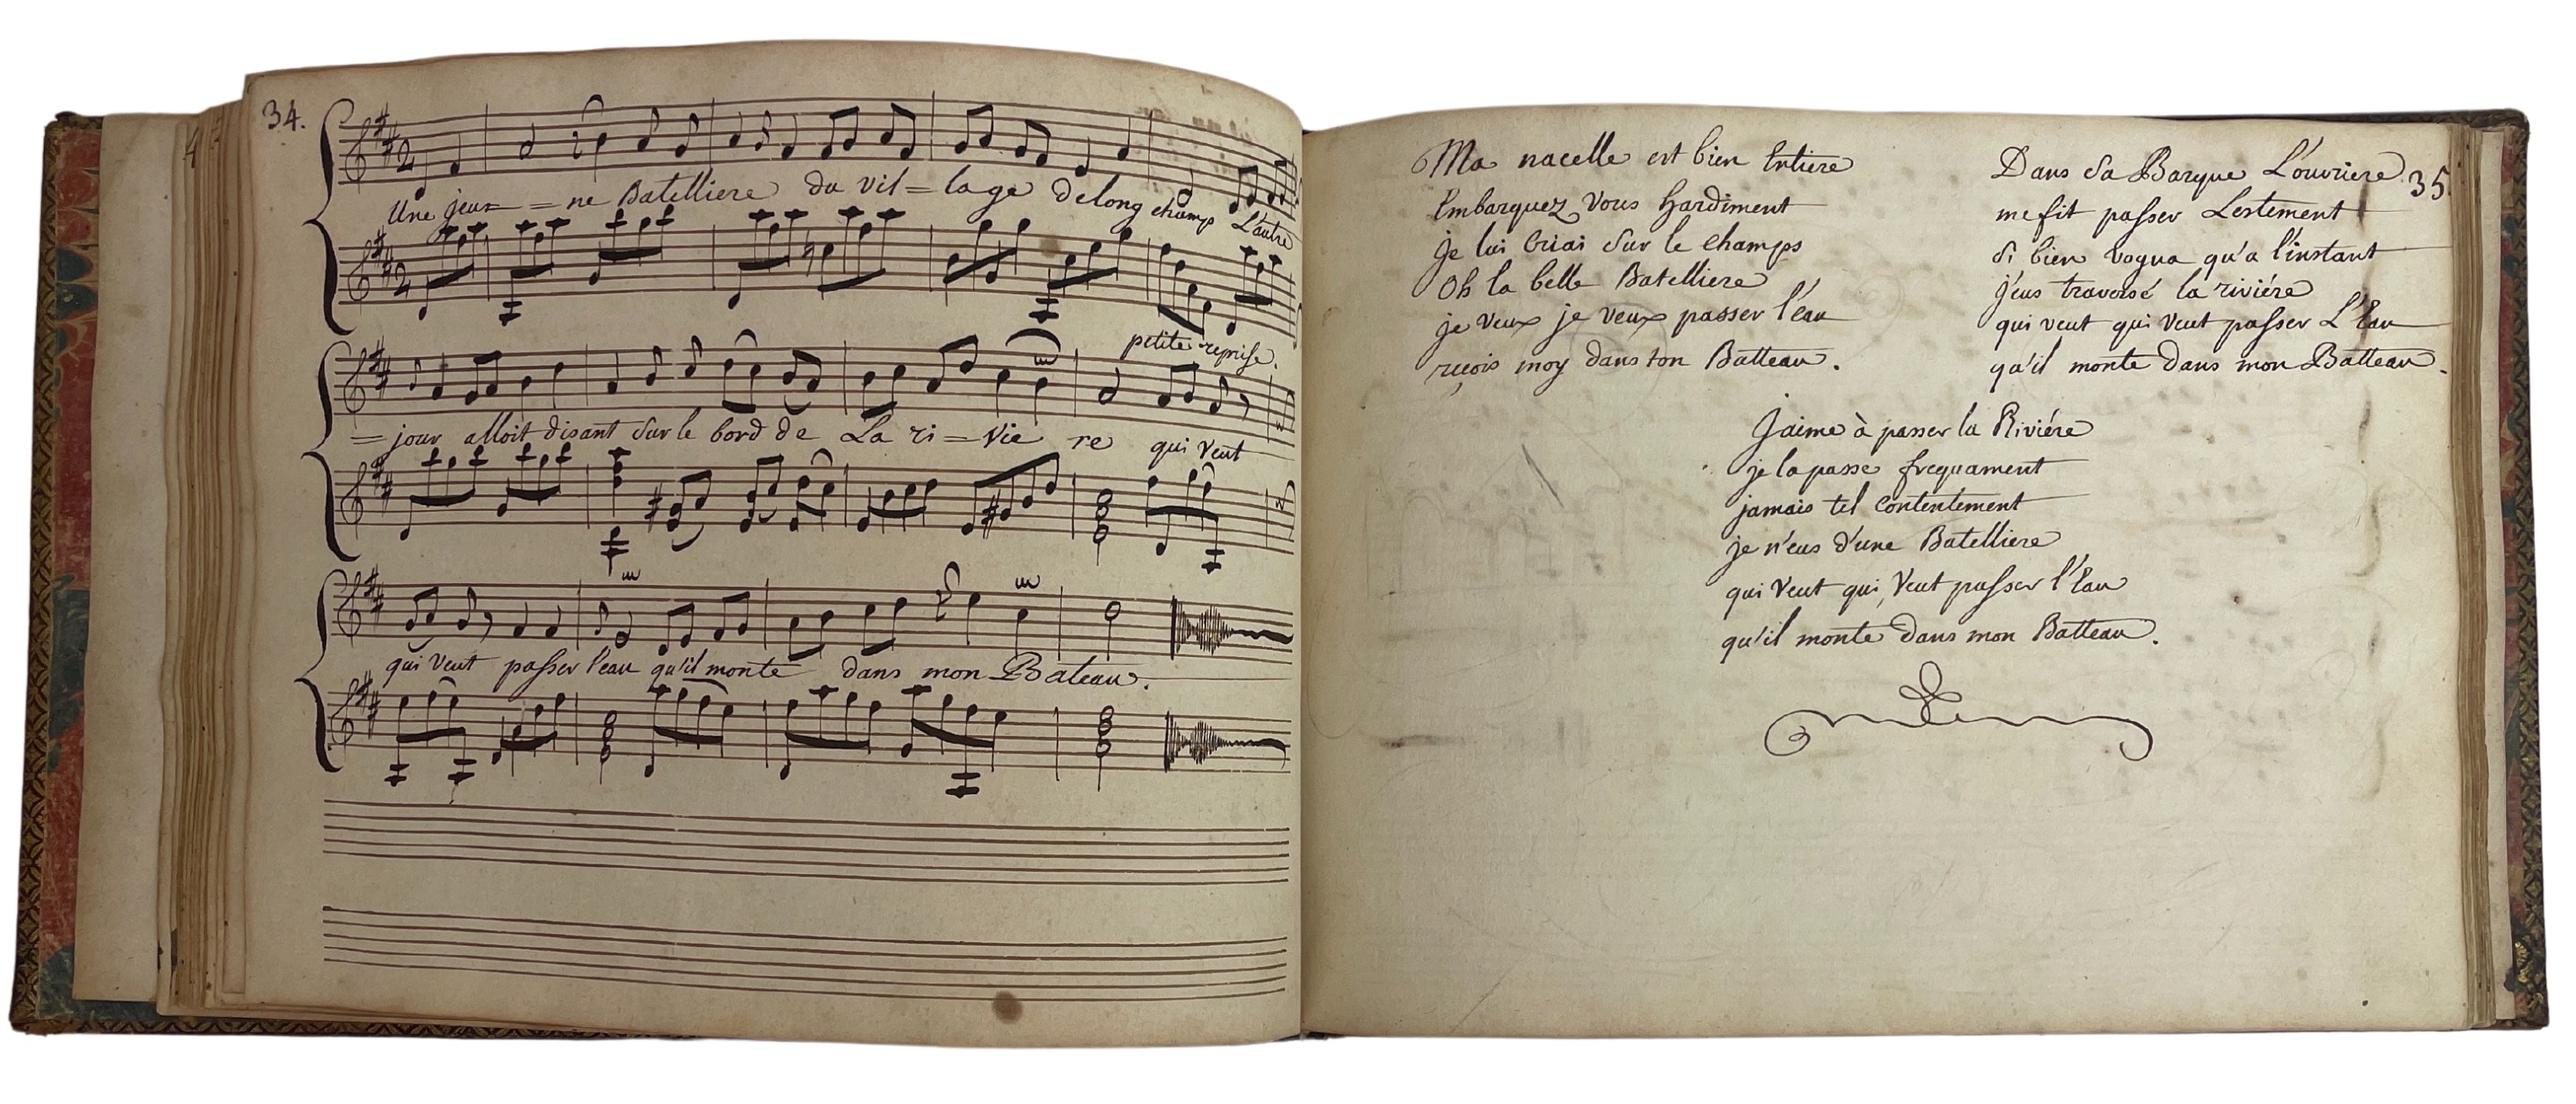 34.
Une jeu= = ne Batelliere du vil = lage de long champs L'autre
petite reprise.
= jour alloit disant sur le bord de La ri = vie re qui veut
qui veut passer l'eau qu'il monte dans mon Bateau.
35.
Ma nacelle est bien Entiere
Embarquez Vous hardiment
je lui Criai sur le champs
Oh la belle Batelliere
je veux je veux passer l'eau
reçois moy dans ton Batteau.
Dans sa Barque L'ouvriere
me fit passer Lestement
si bien vogua qu'a l'instant
j'eus traversé la riviére
qui veut qui veut passer L'Eau
qu'il monte dans mon Batteau.
J'aime à passer la Riviére
je la passe frequament
jamais tel Contentement
je n'eus d'une Batelliere
qui Veut qui Veut passer l'Eau
qu'il monte dans mon Batteau.